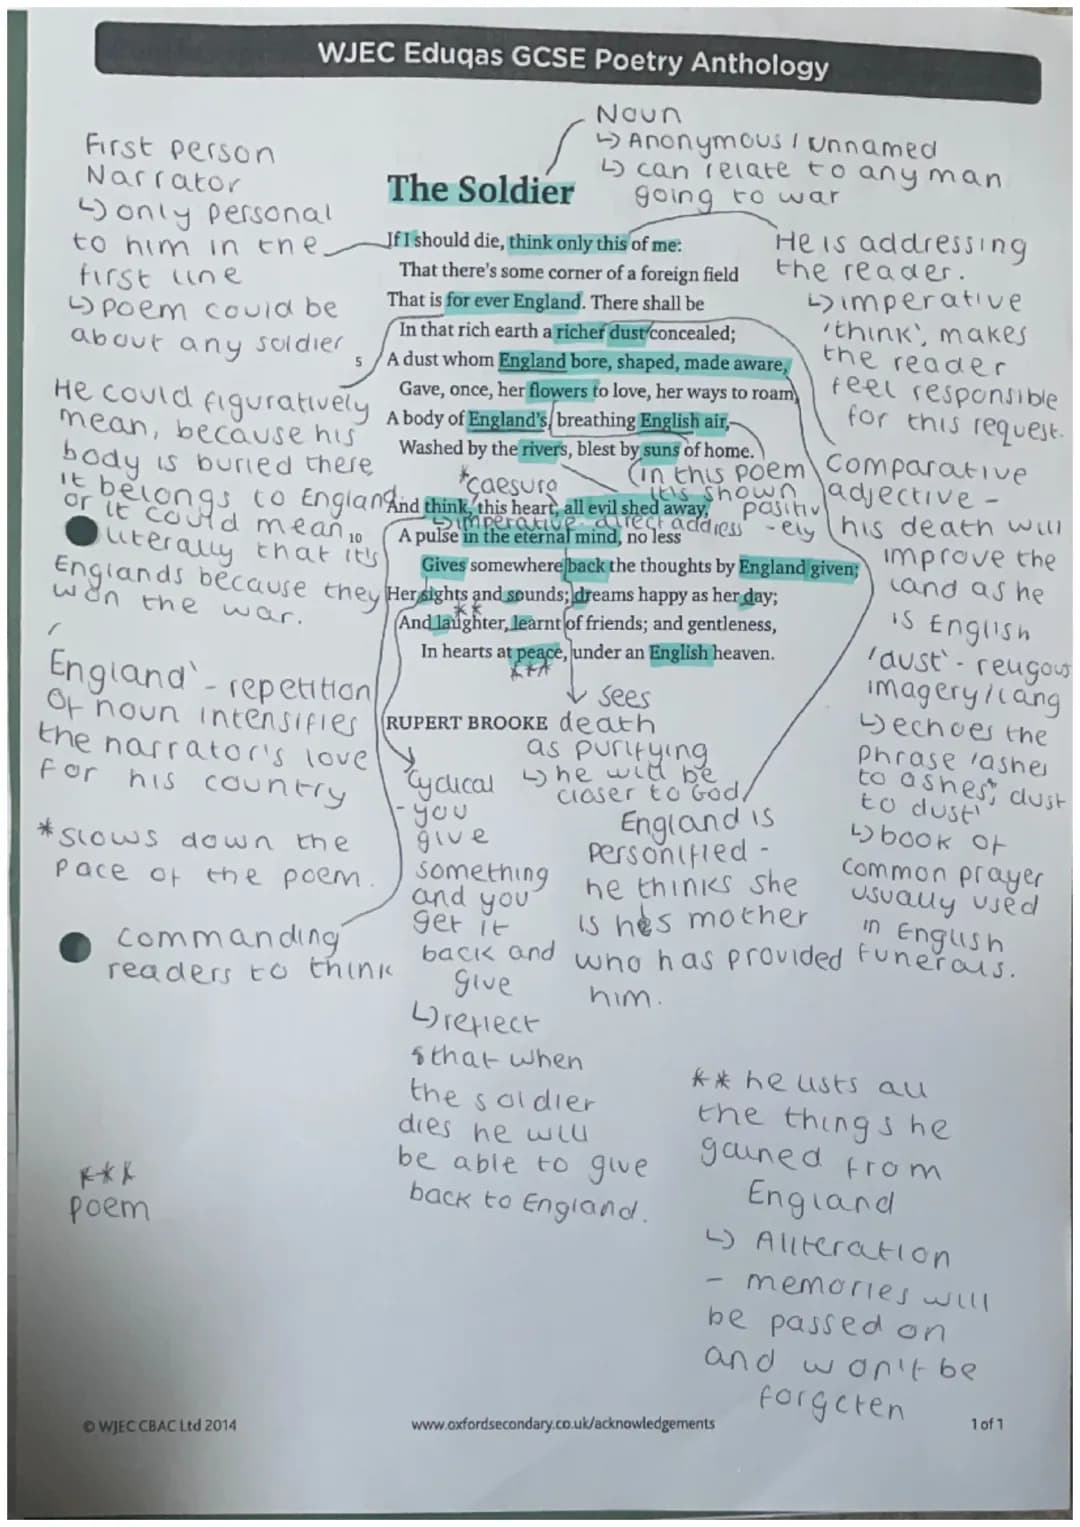 WJEC Eduqas GCSE Poetry Anthology
Noun
↳ Anonymous / unnamed
↳ can relate to any man
going to war
First person
Narrator
↳ only personal
to him in the
first line
↳ poem could be
about any soldier
The Soldier
If I should die, think only this of me:
That there's some corner of a foreign field
That is for ever England. There shall be
In that rich earth a richer dust concealed;
5 A dust whom England bore, shaped, made aware,
Gave, once, her flowers to love, her ways to roam,
A body of England's, breathing English air,
Washed by the rivers, blest by suns of home.
(in this poem
it's shown
positiv
-ely
*caesura
And think, this heart, all evil shed away,
↳imperative - direct address
10 A pulse in the eternal mind, no less
Gives somewhere back the thoughts by England given;
Her sights and sounds; dreams happy as her day;
**
And laughter, learnt of friends; and gentleness,
In hearts at peace, under an English heaven.
***
RUPERT BROOKE
He is addressing
the reader.
↳imperative
'think', makes
the reader
feel responsible
for this request.
He could figuratively
mean, because his
body is buried there
it belongs to England
or it could mean
literally that it's
Englands because they
won the war.
Comparative
adjective -
his death will
improve the
land as he
is English
'dust' - religous
imagery/lang
↳echoes the
phrase 'ashes
to ashes, dust
to dust'
↳book of
common prayer
usually used
in English
funerals.
England' - repetition
of noun intensifies
the narrator's love
for his country
*slows down the
pace of the poem.
commanding
readers to think
sees
death
as purifying
↳he will be
closer to God
Cyclical
- you
give
something
and you
get it
back and
give
↳reflect
that when
the soldier
dies he will
be able to give
back to England.
England is
personified -
he thinks she
is his mother
who has provided
him.
** he lists all
the things he
gained from
England
↳ Aliteration
- memories will
be passed on
and won't be
forgeten
***
poem
© WJEC CBAC Ltd 2014
www.oxfordsecondary.co.uk/acknowledgements
1 of 1